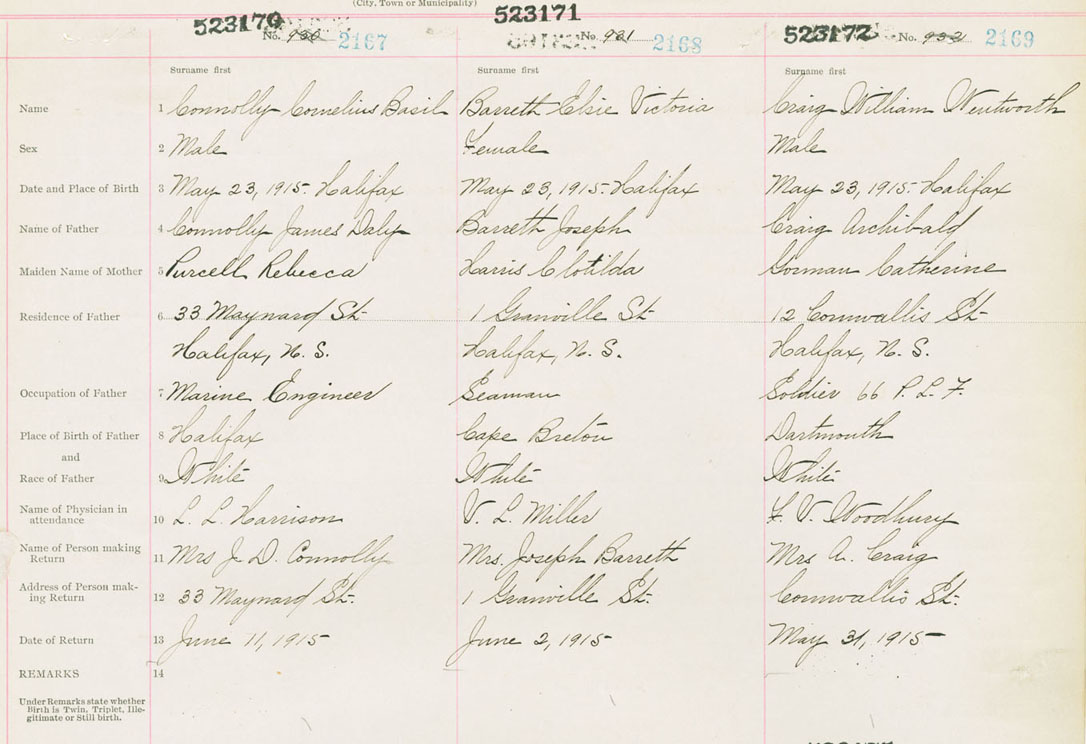 (City, Town or Municipality)
523170 No. 930 2167 523171 No. 931 2168 523172 No. 932 2169
Surname first Surname first Surname first
Name 1 Connolly Cornelius Basil Barreth Elsie Victoria Craig William Wentworth
Sex 2 Male Female Male
Date and Place of Birth 3 May 23, 1915- Halifax May 23, 1915- Halifax May 23, 1915- Halifax
Name of Father 4 Connolly James Daly Barreth Joseph Craig Archibald
Maiden Name of Mother 5 Purcell Rebecca Harris Clotilda Gorman Catherine
Residence of Father 6 33 Maynard St. 1 Granville St. 12 Cornwallis St.
Halifax, N. S. Halifax, N. S. Halifax, N. S.
Occupation of Father 7 Marine Engineer Seaman Soldier 66 P. L. F.
Place of Birth of Father 8 Halifax Cape Breton Dartmouth
and
Race of Father 9 White White White
Name of Physician in
attendance 10 L. L. Harrison V. L. Miller F. V. Woodbury
Name of Person making
Return 11 Mrs J. D. Connolly Mrs. Joseph Barreth Mrs A. Craig
Address of Person mak-
ing Return 12 33 Maynard St. 1 Granville St. Cornwallis St.
Date of Return 13 June 11, 1915 June 2, 1915 May 31, 1915
REMARKS 14
Under Remarks state whether
Birth is Twin, Triplet, Ille-
gitimate or Still birth.